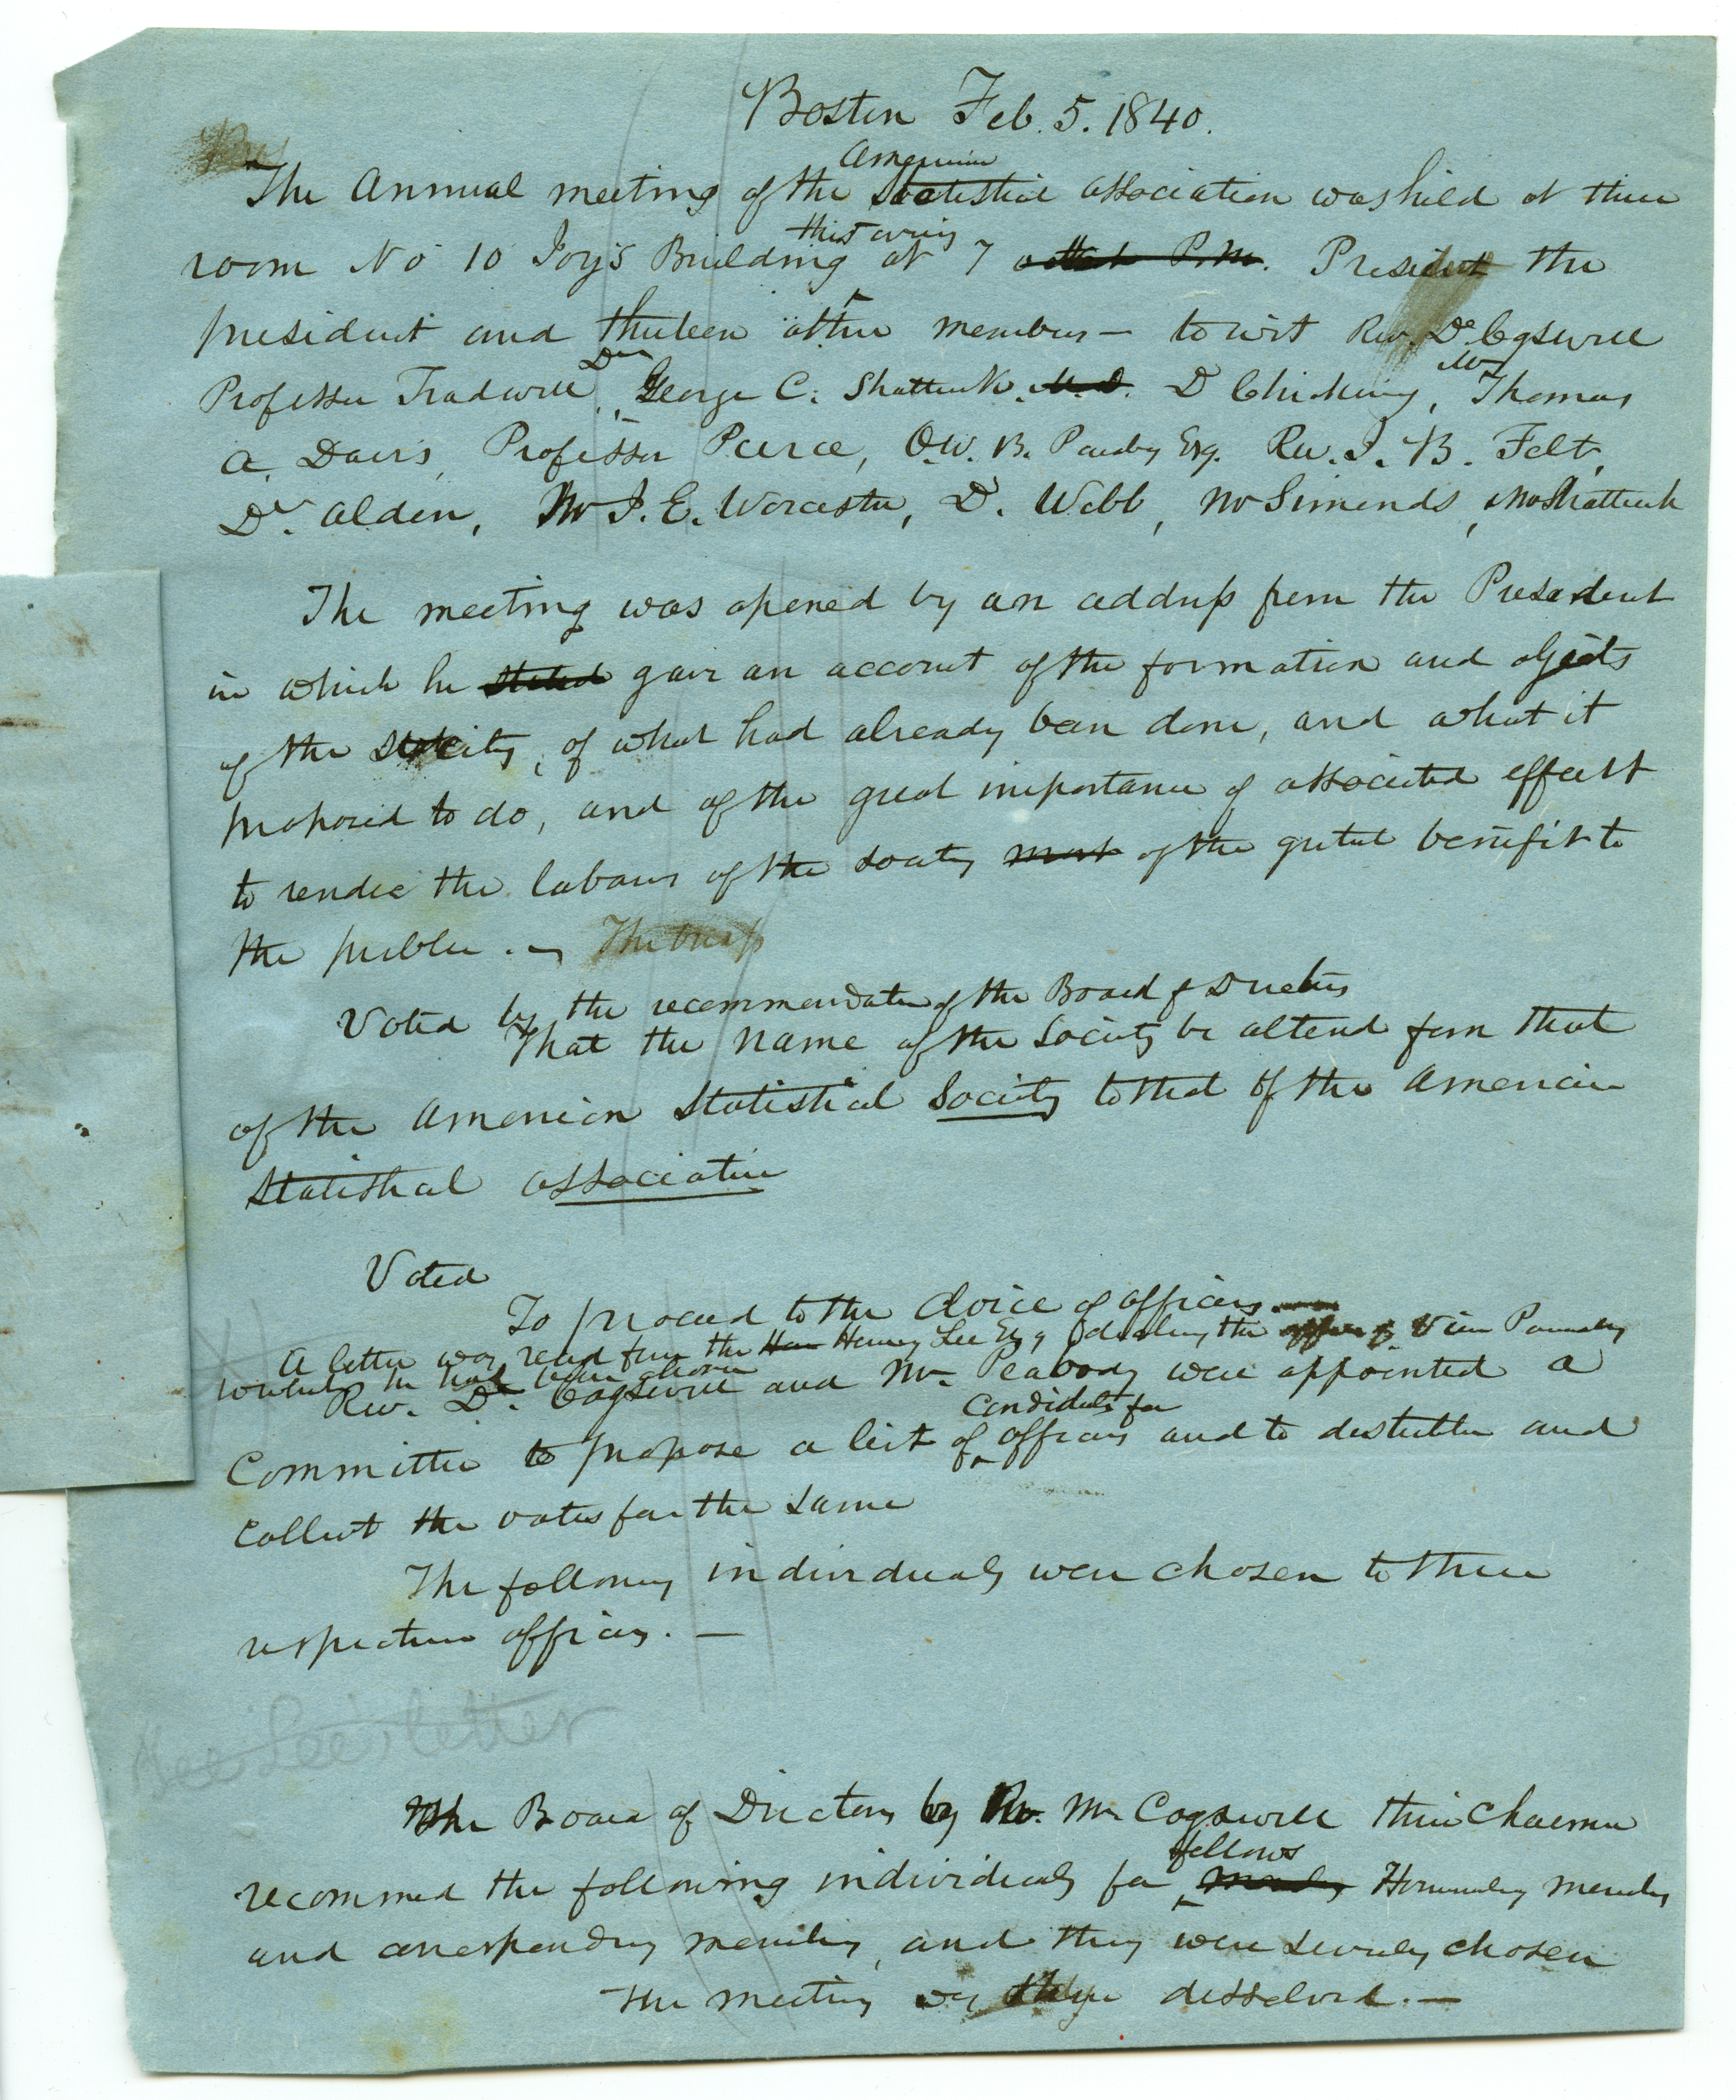 Boston Feb. 5. 1840.
American
The Annual meeting of the Statistical Association was held at their
this evening
room No 10 Joy's Building at 7 o'clock P.M. Present the
president and thirteen other members — to wit Rev. Dr. Cogswell
Dr Mr
Professor Treadwell, George C. Shattuck M.D. D Chickering, Thomas
A. Davis, Professor Peirce, O.W. B. Peabody Esq. Rev. J. B. Felt,
Dr. Alden, Mr J. E. Worcester, D. Webb, Mr Simonds, Mr Shattuck
The meeting was opened by an address from the President
in which he stated gave an account of the formation and objects
of the society, of what had already been done, and what it
proposed to do, and of the great importance of associated effort
to render the labours of the society most of the greatest benefit to
the public. — The busi
Voted by the recommendation of the Board of Directors
That the name of the Society be altered from that
of the American Statistical Society to that of the American
Statistical Association
Voted
To proceed to the choice of officers
A letter was read from the Hon Henry Lee Esq declining the office of Vice President
to which he had been chosen
Rev. Dr. Cogswell and Mr. Peabody were appointed a
candidates for
Committee to propose a list of officers and to distribute and
Collect the votes for the same
The following individuals were chosen to their
respective offices. —
See Lee's letter
The Board of Directors by Rev. Mr Cogswell their Chairman
fellows
recommend the following individuals for members Honorary members
and corresponding members, and they were severally chosen
The meeting was then dissolved. —